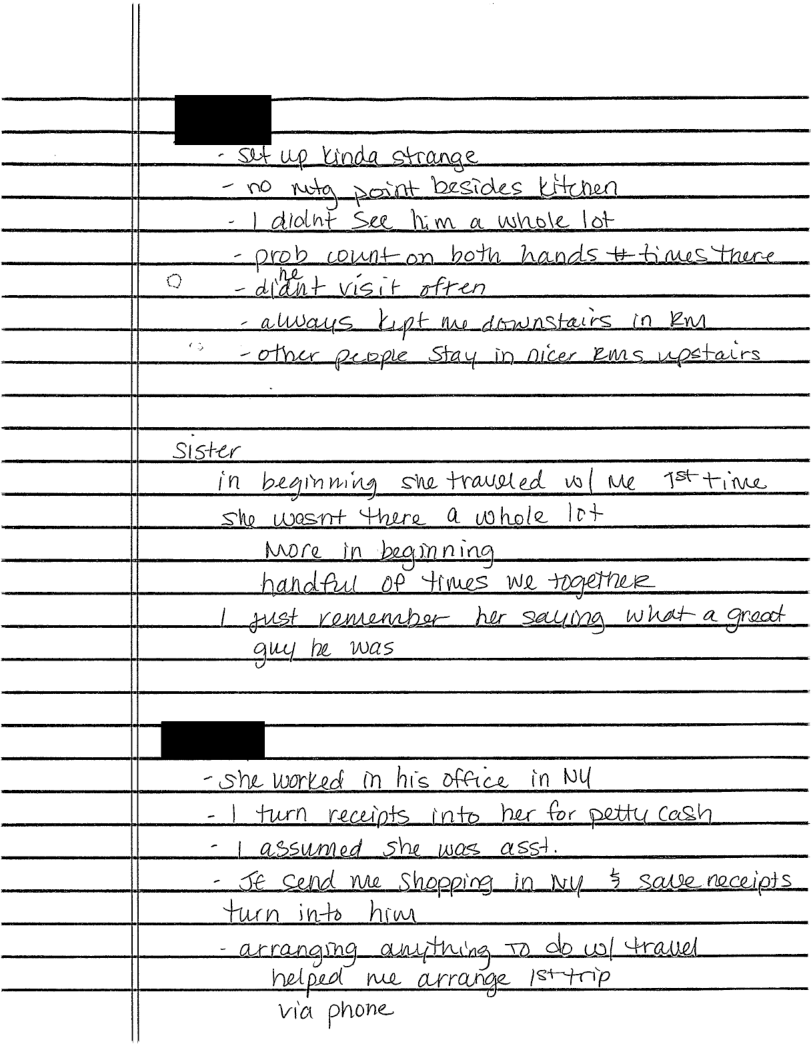 - set up kinda strange
- no mtg point besides kitchen
- I didnt see him a whole lot
- prob count on both hands # times there
- he didnt visit often
- always kept me downstairs in Rm
- other people stay in nicer Rms upstairs
sister
in beginning she traveled w/ me 1st time
she wasnt there a whole lot
More in beginning
handful of times we together
I just remember her saying what a great
guy he was
- she worked in his office in NY
- I turn receipts into her for petty cash
- I assumed she was asst.
- JE send me shopping in NY & save receipts
turn into him
- arranging anything to do w/ travel
helped me arrange 1st trip
via phone